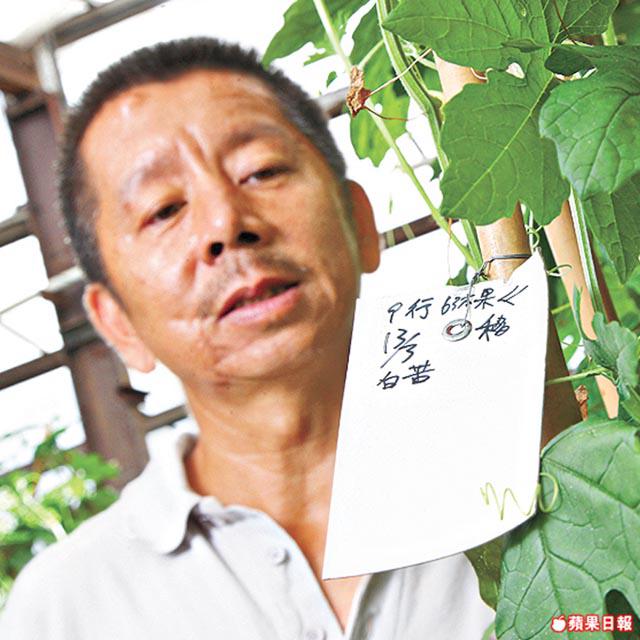 9行 63本果
13/3 移
白苦
蘋果日報